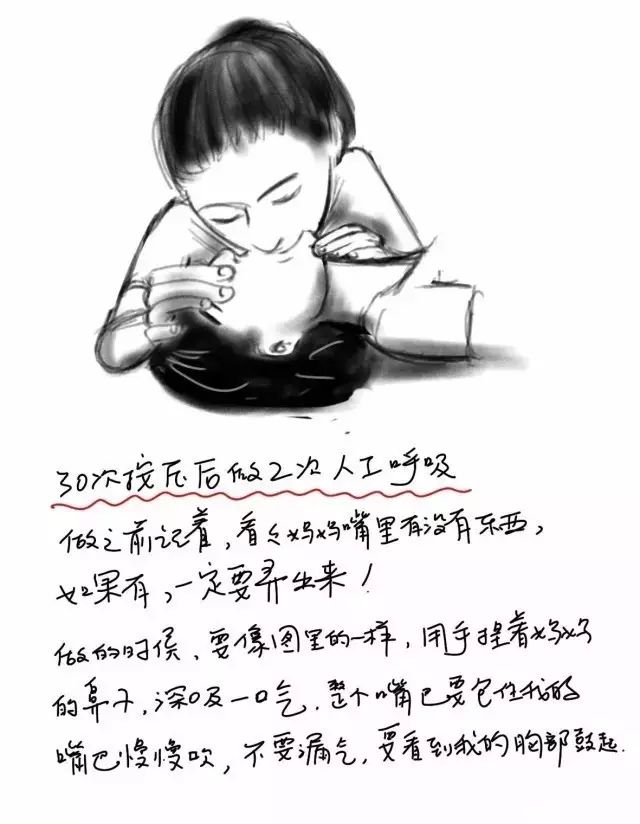 30次按压后做2次人工呼吸
做之前记着,看看妈妈嘴里有没有东西,
如果有,一定要弄出来!
做的时候,要像图里的一样,用手捏着妈妈
的鼻子,深吸一口气,整个嘴巴要包住我的
嘴巴慢慢吹,不要漏气,要看到我的胸部鼓起.